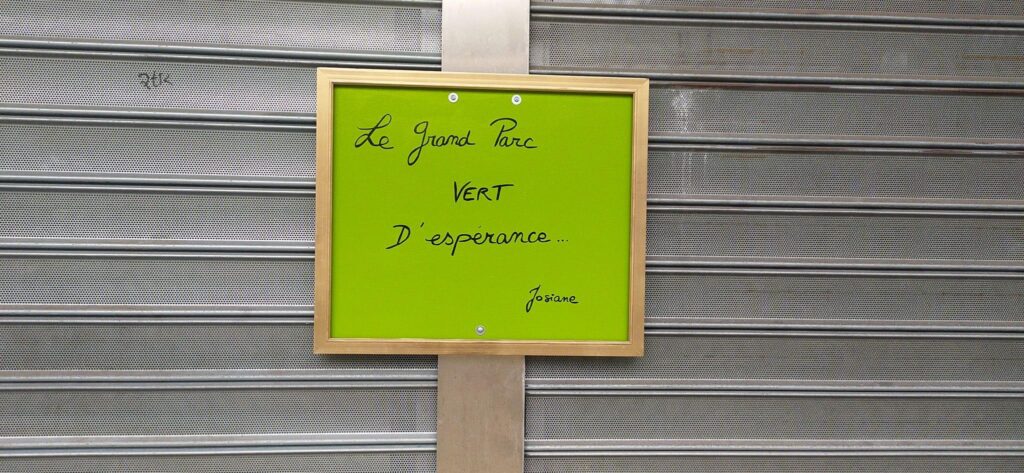 Le Grand Parc
VERT
D'espérance...
Josiane